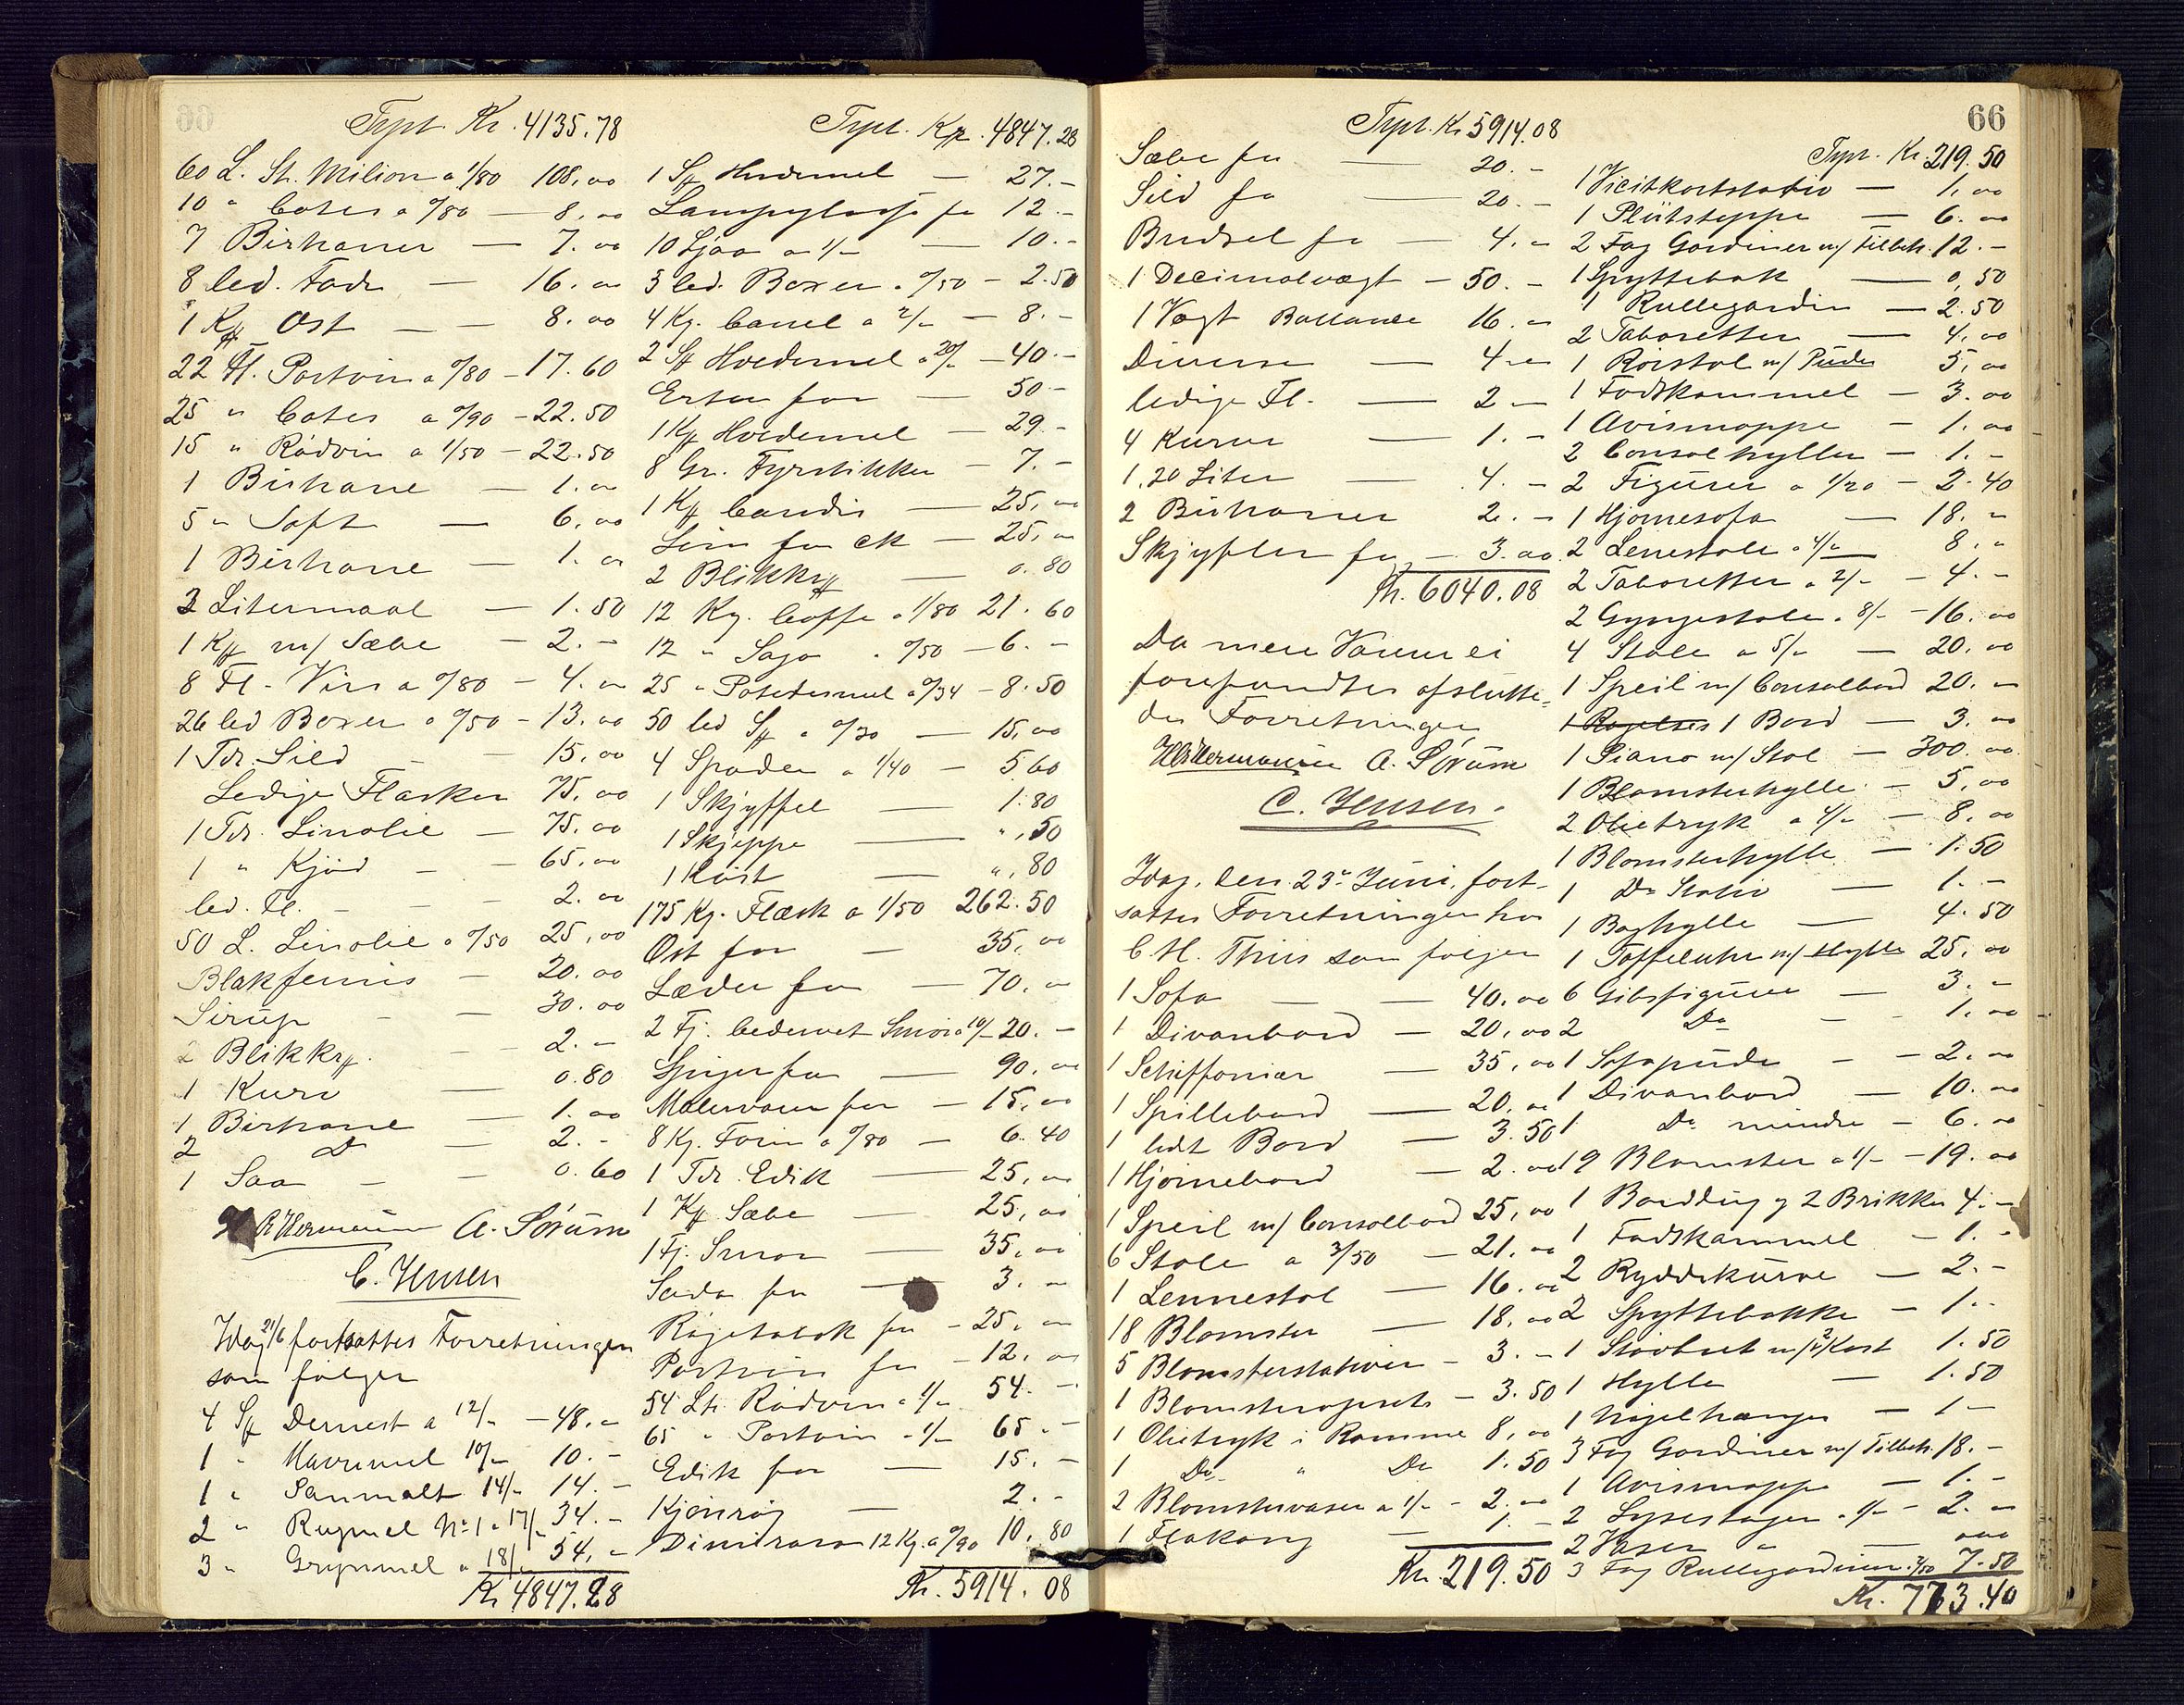 Trpt. Kr. 4135.78
60 L. St. Milion a 1/80 108.00
10 " Cotes a 0/80 — 8.00
7 Birhaner — 7.00
8 led. Fade — 16.00
1 Kg Ost — — 8.00
22 Fl. Portvin a 0/80 - 17.60
25 " Cotes a 0/90 - 22.50
15 " Rödvin a 1/50 - 22.50
1 Birhane — 1.00
5 " Saft — 6.00
1 Birhane — 1.00
3 Litermaal — 1.50
1 Kg m/ Sæbe — 2.-
8 Fl. Vin a 0/80 — 4.00
26 led Boxer a 0/50 - 13.00
1 Tdr. Sild — 15.00
Ledige Flasker 75.00
1 Tdr. Linolie — 75.00
1 " Kjöd — 65.00
led. Fl. - - - 2.00
50 L. Linolie a 0/50 25.00
Blakfernis — 20.00
Sirup - — 30.00
2 Blikkg. - - 2.-
1 Kurv — 0.80
1 Birhane — 1.00
2 Do — 2.-
1 Saa - - 0.60
A. Sörum
C. Jensen
Idag 21/6 fortsattes Forretningen
som fölger
4 Sk 12/- — 48.-
1 " Havremel 10/- 10.-
1 " Sanmalt 14/- 14.-
2 " Rugmel No 1 a 17/- 34.-
3 " Grynmel a 18/- 54.-
Kr 4847.28
Trpt. Kr. 4847.28
1 Sk Hvedemel — 27.-
Lampeglas for 12.-
10 Ljaa a 1/- — 10.-
5 led. Boxer a 0/50 - 2.50
4 Kg. Canel a 2/- — 8.-
2 Sk Hvedemel a 20/- — 40.-
Erter for — 50-
1 Kg Hvedemel — 29-
8 Gr. Fyrstikker — 7.-
1 Kg Candis — 25.00
Lim for ck — 25.00
2 Blikkg — 0.80
12 Kg. Caffe a 1/80 21.60
12 " Sago a 0/50 — 6.-
25 " Potetesmel a 0/34 - 8.50
50 led Sk a 0/30 — 15.00
4 Spader a 1/40 — 5.60
1 Skjyffel — 1.80
1 Skjeppe — ".50
1 Kost — ".80
175 Kg. Flæsk a 1/50 262.50
Ost for — 35.00
Læder for — 70.00
2 Fj. bedervet Smör a 10/- 20.-
for — 90.00
Malervarer for — 15.00
8 Kg. Farin a 0/80 — 6.40
1 Tdr. Edik — 25.00
1 Kg Sæbe — 25.00
1 Fj. Smör — 35.00
Soda for — 3.-
Rögetobak for — 25.00
Portvin for — 12.00
54 Ltr. Rödvin a 1/- 54.-
65 " Portvin a 1/- 65.-
Edik for — 15.-
Kjönrög — 2.-
12 Kg. a 0/90 10.80
Kr. 5914.08
66
Trpt. Kr 5914.08
Sæbe for — 20.-
Sild for — 20.-
Brudsel for — 4.-
1 Decimalvægt — 50.-
1 Vægt Ballance 16.-
Diverse — 4.-
ledige Fl. — 2-
4 Kurve — 1.-
1, 20 Liter — 4.-
2 Birhaner 2.-
Skjyfler for — 3.00
Kr. 6040.08
Da mere Varer ei
forefandtes afslutte-
des Forretningen
A. Sörum
C. Jensen.
Idag, den 23de Juni, fort-
sattes Forretningen hos
C. H. Thiis som fölger
1 Sofa — — 40.00
1 Divanbord — 20.00
1 Schiffonier — 35.00
1 Spillebord — 20.00
1 lidt Bord — 3.50
1 Hjörnebord — 2.00
1 Speil m/ Consolbord 25.00
6 Stole a 3/50 — 21.00
1 Lennestol — 16.00
18 Blomster — 18.00
5 Blomsterstativer — 3.-
1 Blomsteropsats — 3.50
1 Olietryk i Ramme 8.00
1 Do " Do 1.50
2 Blomstervaser a 1/- - 2.00
1 Flakong — 1.-
Kr. 219.50
Trpt. Kr. 219.50
1 Vicitkortstativ — 1.00
1 Plütsteppe — 6.00
2 Fag Gardiner m/ Tilbeh. 12.-
1 Spyttebak — 0.50
1 Rullegardin — 2.50
2 Taboretter — 4.00
1 Rörstol m/ Püde 5.00
1 Fodskammel — 3.00
1 Avismappe — 1.00
2 Consolhyller — 1.-
2 Figürer a 1/20 — 2.40
1 Hjörnesofa — 18.-
2 Lenestole a 4/- 8.-
2 Taboretter a 2/- — 4.-
2 Gyngestole a 8/- - 16.00
4 Stole a 5/- — 20.00
1 Speil m/ Consolbord 20.-
1 Bord — 3.00
1 Piano m/ Stol — 300.00
1 Blomsterhylle — 5.00
2 Olietryk a 4/- — 8.00
1 Blomsterhylle — 1.50
1 Do Stativ — 1.-
1 Boghylle — 4.50
1 Taffeluhr m/ Hylle 25.00
6 Gibsfigürer — 3.-
2 Do - 1.00
1 Sofapüde — - 2.00
1 Divanbord — 10.00
1 Do mindre - 6.00
19 Blomster a 1/- — 19.00
1 Borddug og 2 Brikker 4.-
1 Fodskammel — 1.-
2 Ryddekürve — 2.-
2 Spyttebakke — 1.-
1 Stövbret m/ 2 Kost 1.50
1 Hylle — 1.50
1 Nögelhænger — 1-
3 Fag Gardiner m/ Tilbeh. 18.-
1 Avismappe — 1.-
2 Lysestager a 1/- - 2.00
2 Vaser
3 Fag Rullegardiner a 2/50 7.50
Kr. 773.40